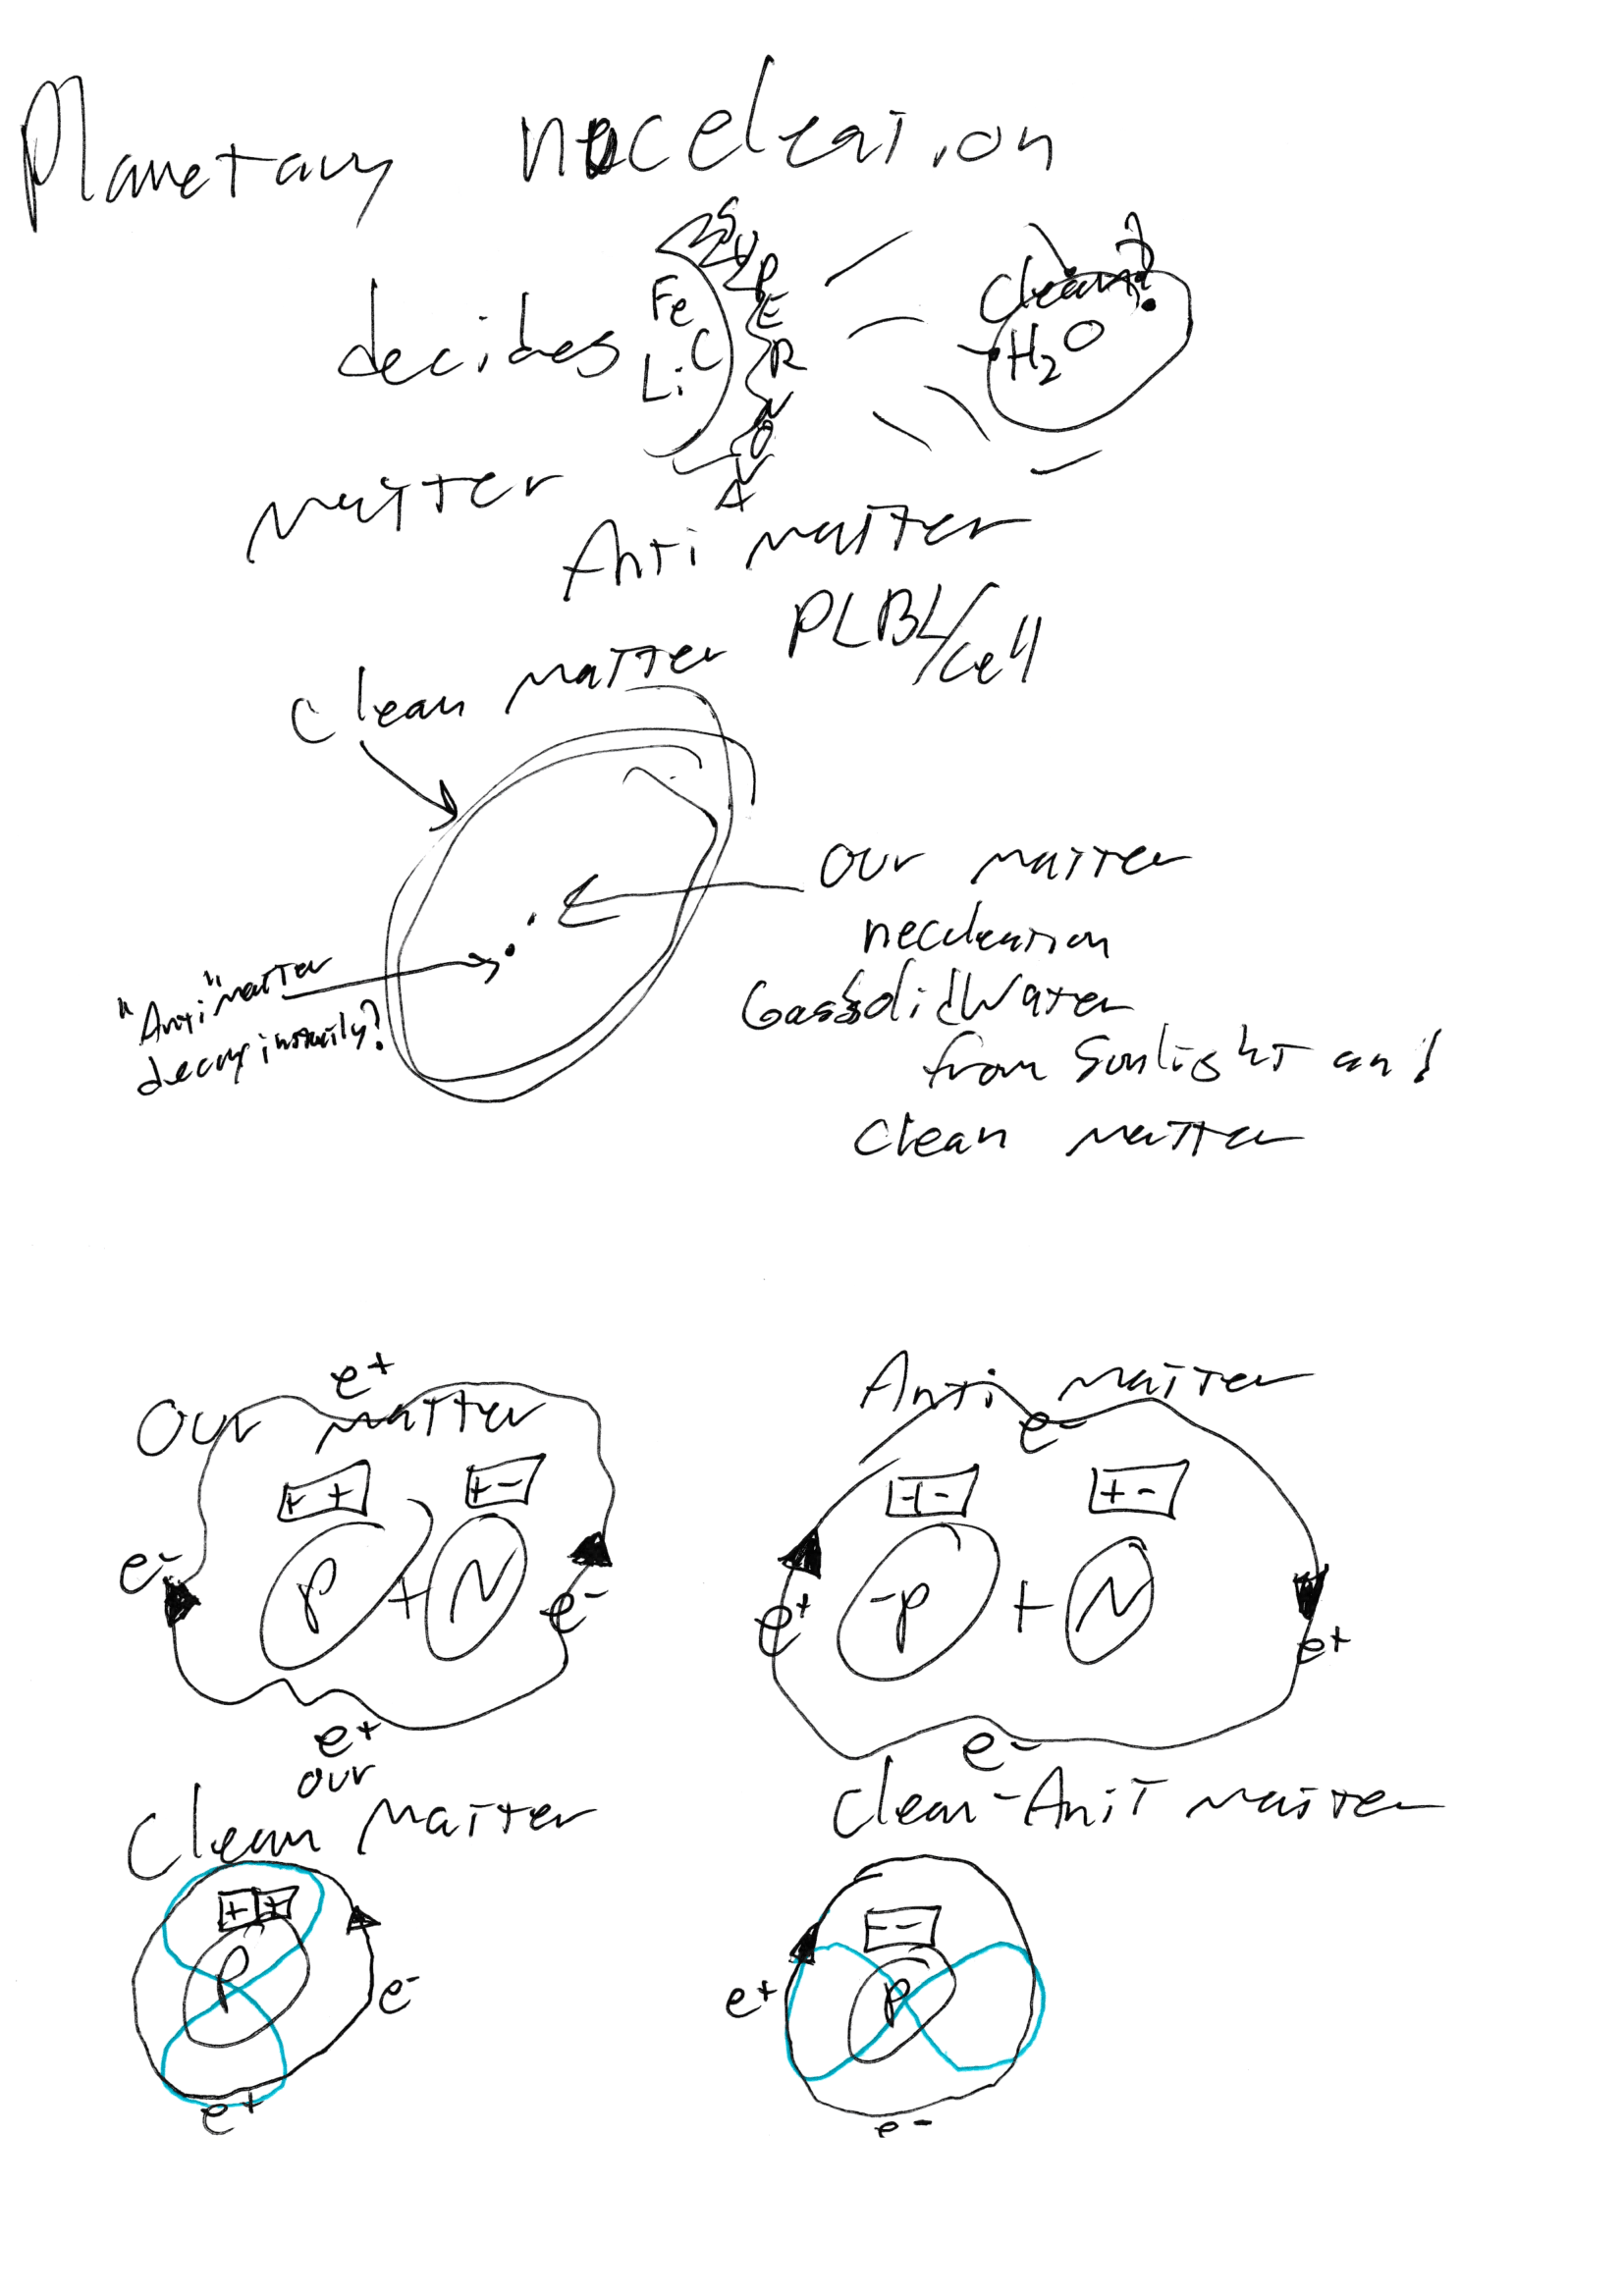 Planetary nuceleation
decides
Fe
C
Li
SUPERNOVA
Clean?
H2O
matter
Anti matter
PLBL/Cell
Clean matter
our matter
neccleation
Gas Solid Water
from Sunlight and
Clean matter
"Anti" matter
decay instantly?
e+
Our matter
++
+-
e-
P + N
e-
e+
Anti matter
e-
+-
+-
e+
-P + N
e+
e-
our
Clean Matter
++
P
e-
e+
Clean-Anit matter
--
P
e+
e-